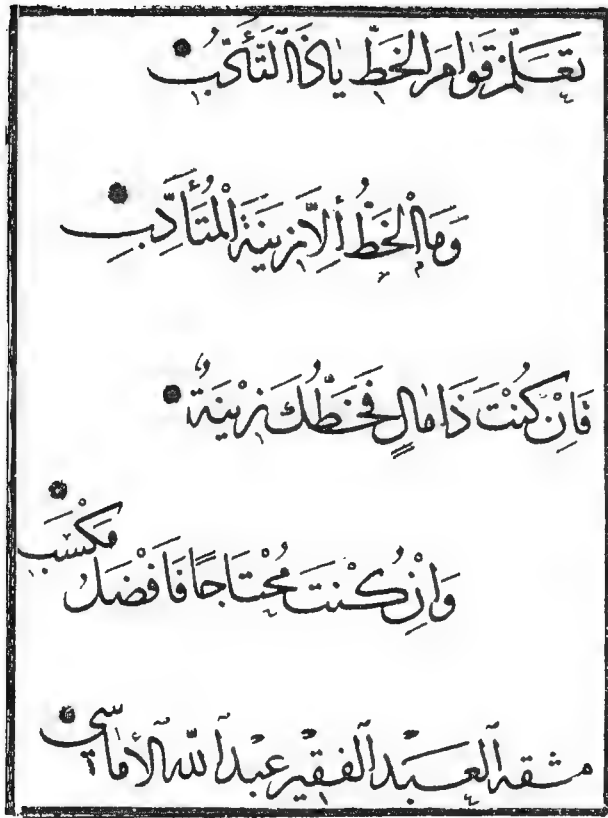 تَعَلَّمْ قَوَامَ الْخَطِّ يَا ذَا التَّأَدُّبُ
وَمَا الْخَطُّ إِلَّا زِينَةُ الْمُتَأَدِّبِ
فَإِنْ كُنْتَ ذَا مَالٍ فَخَطُّكَ زِينَةٌ
وَإِنْ كُنْتَ مُحْتَاجًا فَأَفْضَلُ مَكْسَبِ
مشقه العبد الفقير عبد الله الأماسي